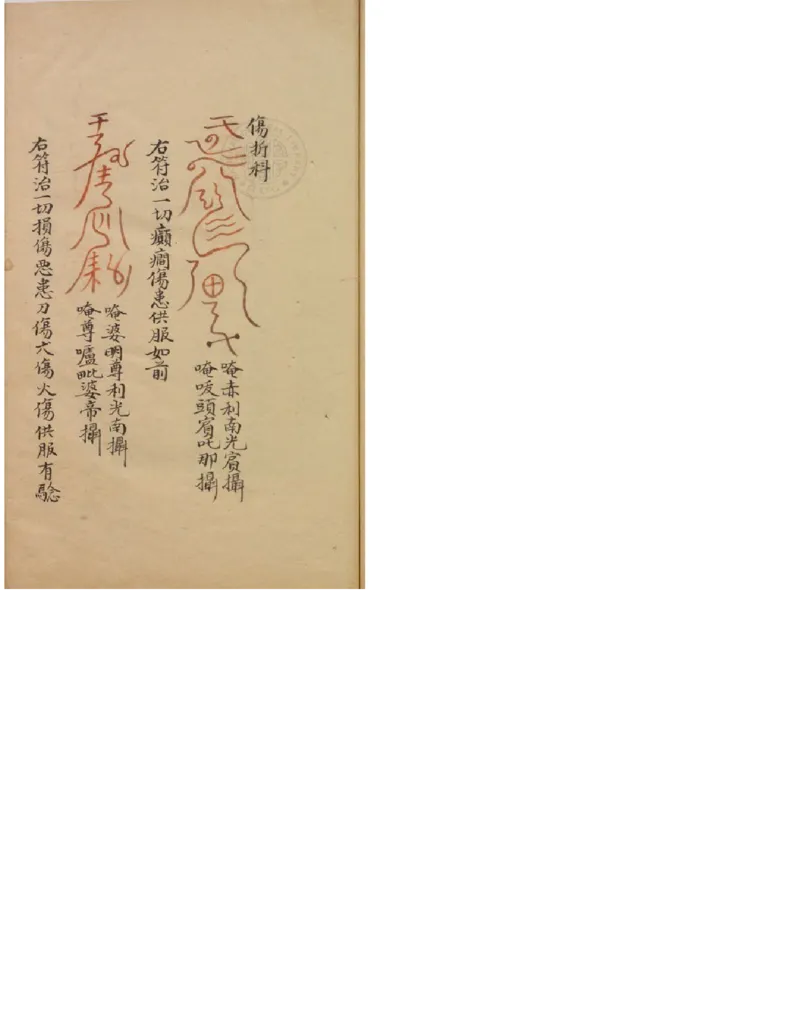 傷折科
唵赤利南光賔攝
唵吸頭賔吒那攝
右符治一切癲癎傷患供服如前
唵婆明尊利光南攝
唵尊嚧毗婆帝攝
右符治一切損傷惡患刀傷六傷火傷供服有驗